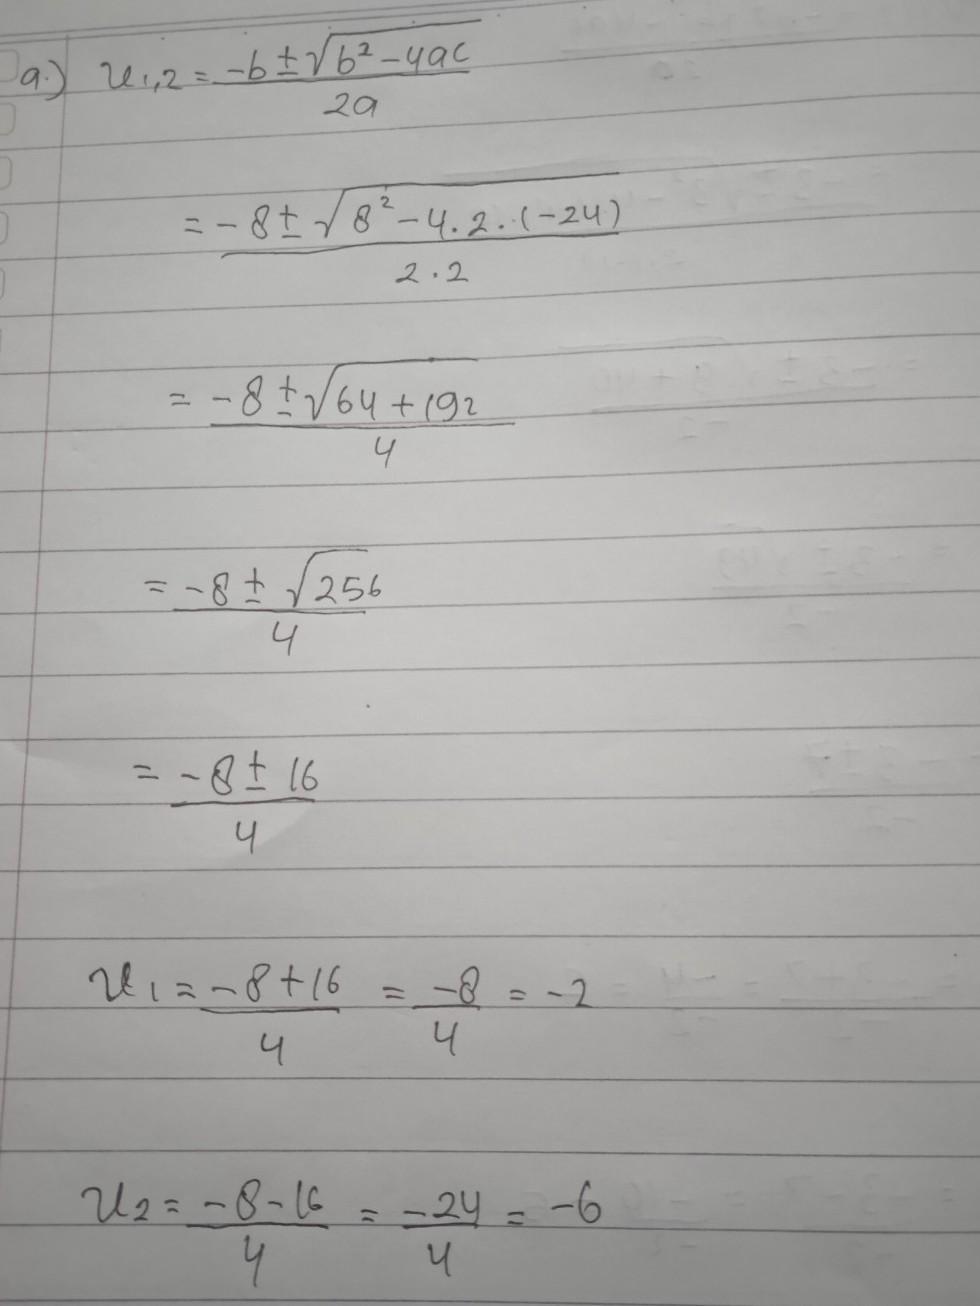 a.) x₁,₂ = (-b ± √(b² - 4ac)) / 2a
= (-8 ± √(8² - 4.2.(-24))) / 2.2
= (-8 ± √(64 + 192)) / 4
= (-8 ± √256) / 4
= (-8 ± 16) / 4
x₁ = (-8 + 16) / 4 = -8 / 4 = -2
x₂ = (-8 - 16) / 4 = -24 / 4 = -6